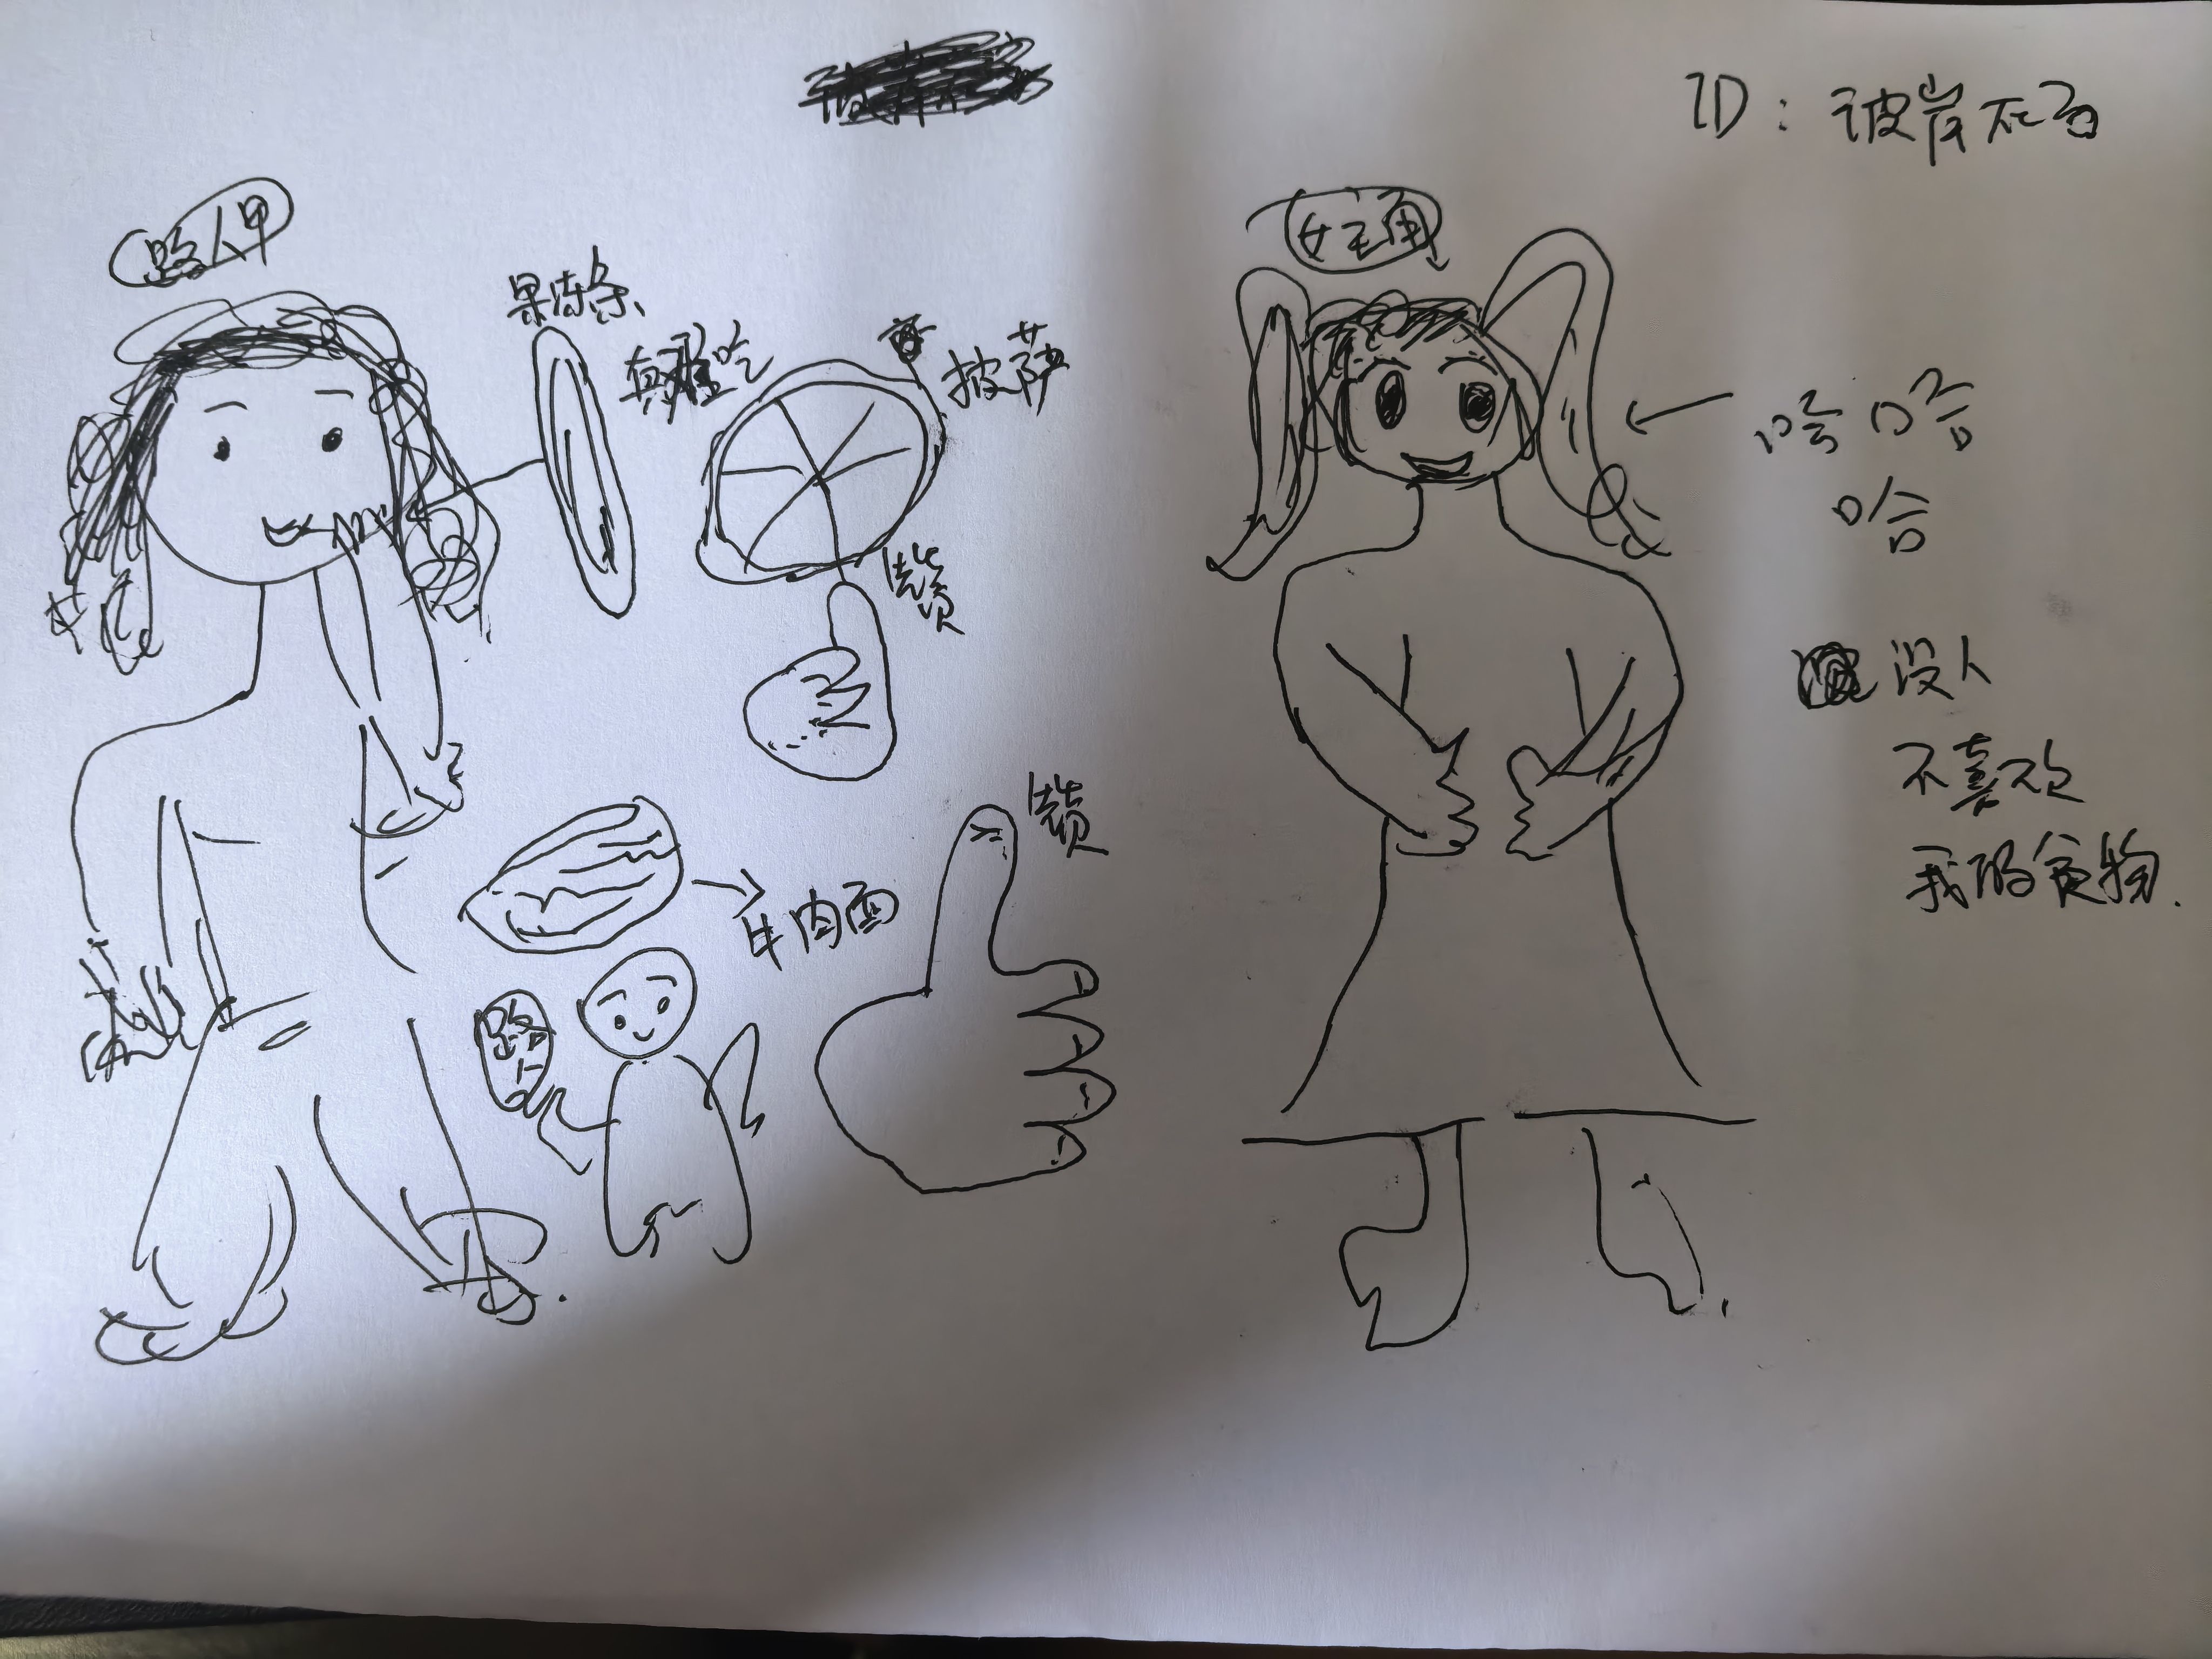 ID：彼岸不る
路人甲
女主角
果冻条
真难吃
披萨
赞
哈哈
哈
没人
不喜欢
我的食物.
赞
牛肉面
路